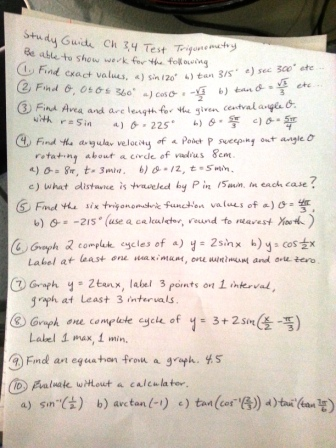 Study Guide Ch 3,4 Test Trigonometry
Be able to show work for the following
① Find exact values. a) sin 120° b) tan 315° c) sec 300° etc...
② Find θ, 0≤θ≤360° a) cos θ = -√3/2 b) tan θ = √3/3 etc...
③ Find Area and arc length for the given central angle θ.
with r = 5in a) θ = 225° b) θ = 5π/3 c) θ = 5π/4
④ Find the angular velocity of a Point P sweeping out angle θ
rotating about a circle of radius 8cm.
a) θ = 8π, t = 3min. b) θ = 12, t = 5min.
c) What distance is traveled by P in 15min. in each case?
⑤ Find the six trigonometric function values of a) θ = 4π/3,
b) θ = -215° (use a calculator, round to nearest 100th)
⑥ Graph 2 complete cycles of a) y = 2 sin x b) y = cos ½x
Label at least one maximum, one minimum and one zero.
⑦ Graph y = 2 tan x, label 3 points on 1 interval,
graph at Least 3 intervals.
⑧ Graph one complete cycle of y = 3 + 2 sin (x/2 - π/3)
Label 1 max, 1 min.
⑨ Find an equation from a graph. 4.5
⑩ Evaluate without a calculator.
a) sin⁻¹(½) b) arctan(-1) c) tan(cos⁻¹(2/3)) d) tan⁻¹(tan 7π/6)